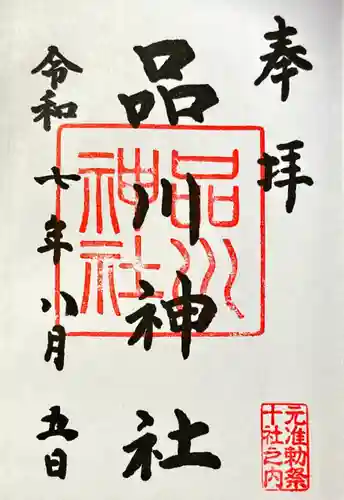 奉拝
品川神社
品川神社
令和七年八月五日
元准勅祭
十社之内